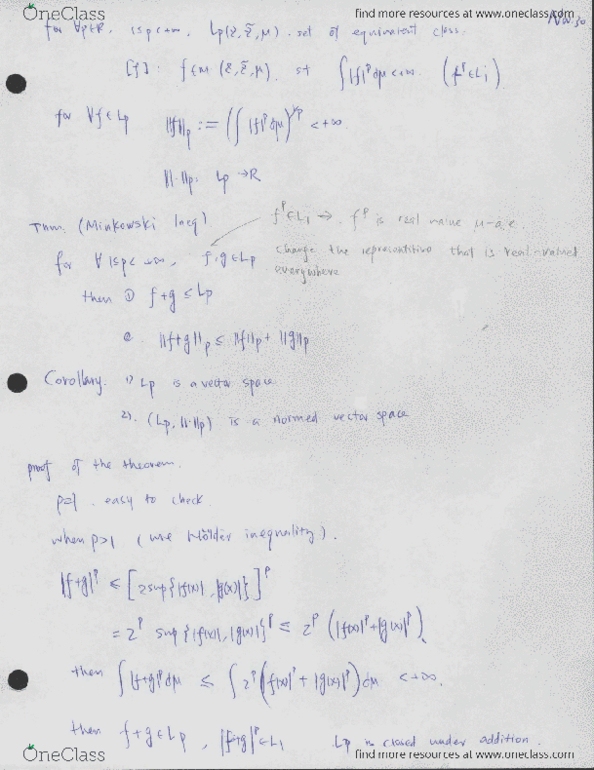 OneClass
find more resources at www.oneclass.com
Nov. 30
for ∀p∈R, 1≤p<+∞, Lp(Σ, Σ̃, μ). set of equivalent class.
[f]: f∈m (Σ, Σ̃, μ). st ∫|f|^p dμ<+∞. (f^p∈L1)
for ∀f∈Lp ||f||p := (∫|f|^p dμ)^1/p < +∞
||·||p. Lp → R
Thm. (Minkowski Ineq)
f^p∈L1 → . f^p is real value μ-a.e.
change the representitive that is real-valued
everywhere
for ∀ 1≤p<+∞, f, g∈Lp
then ① f+g ≤ Lp
②. ||f+g||p ≤ ||f||p + ||g||p
Corollary. 1) Lp is a vector space
2). (Lp, ||·||p) is a normed vector space
proof of the theorem.
p=1 . easy to check.
when p>1 (use Hölder inequality).
|f+g|^p ≤ [2sup{|f(x)|, |g(x)|}]^p
= 2^p sup{|f(x)|, |g(x)|}^p ≤ 2^p (|f(x)|^p+|g(x)|^p).
then ∫|f+g|^p dμ ≤ ∫2^p(|f(x)|^p + |g(x)|^p) dμ <+∞.
then f+g∈Lp , |f+g|^p∈L1 Lp is closed under addition.
OneClass
find more resources at www.oneclass.com